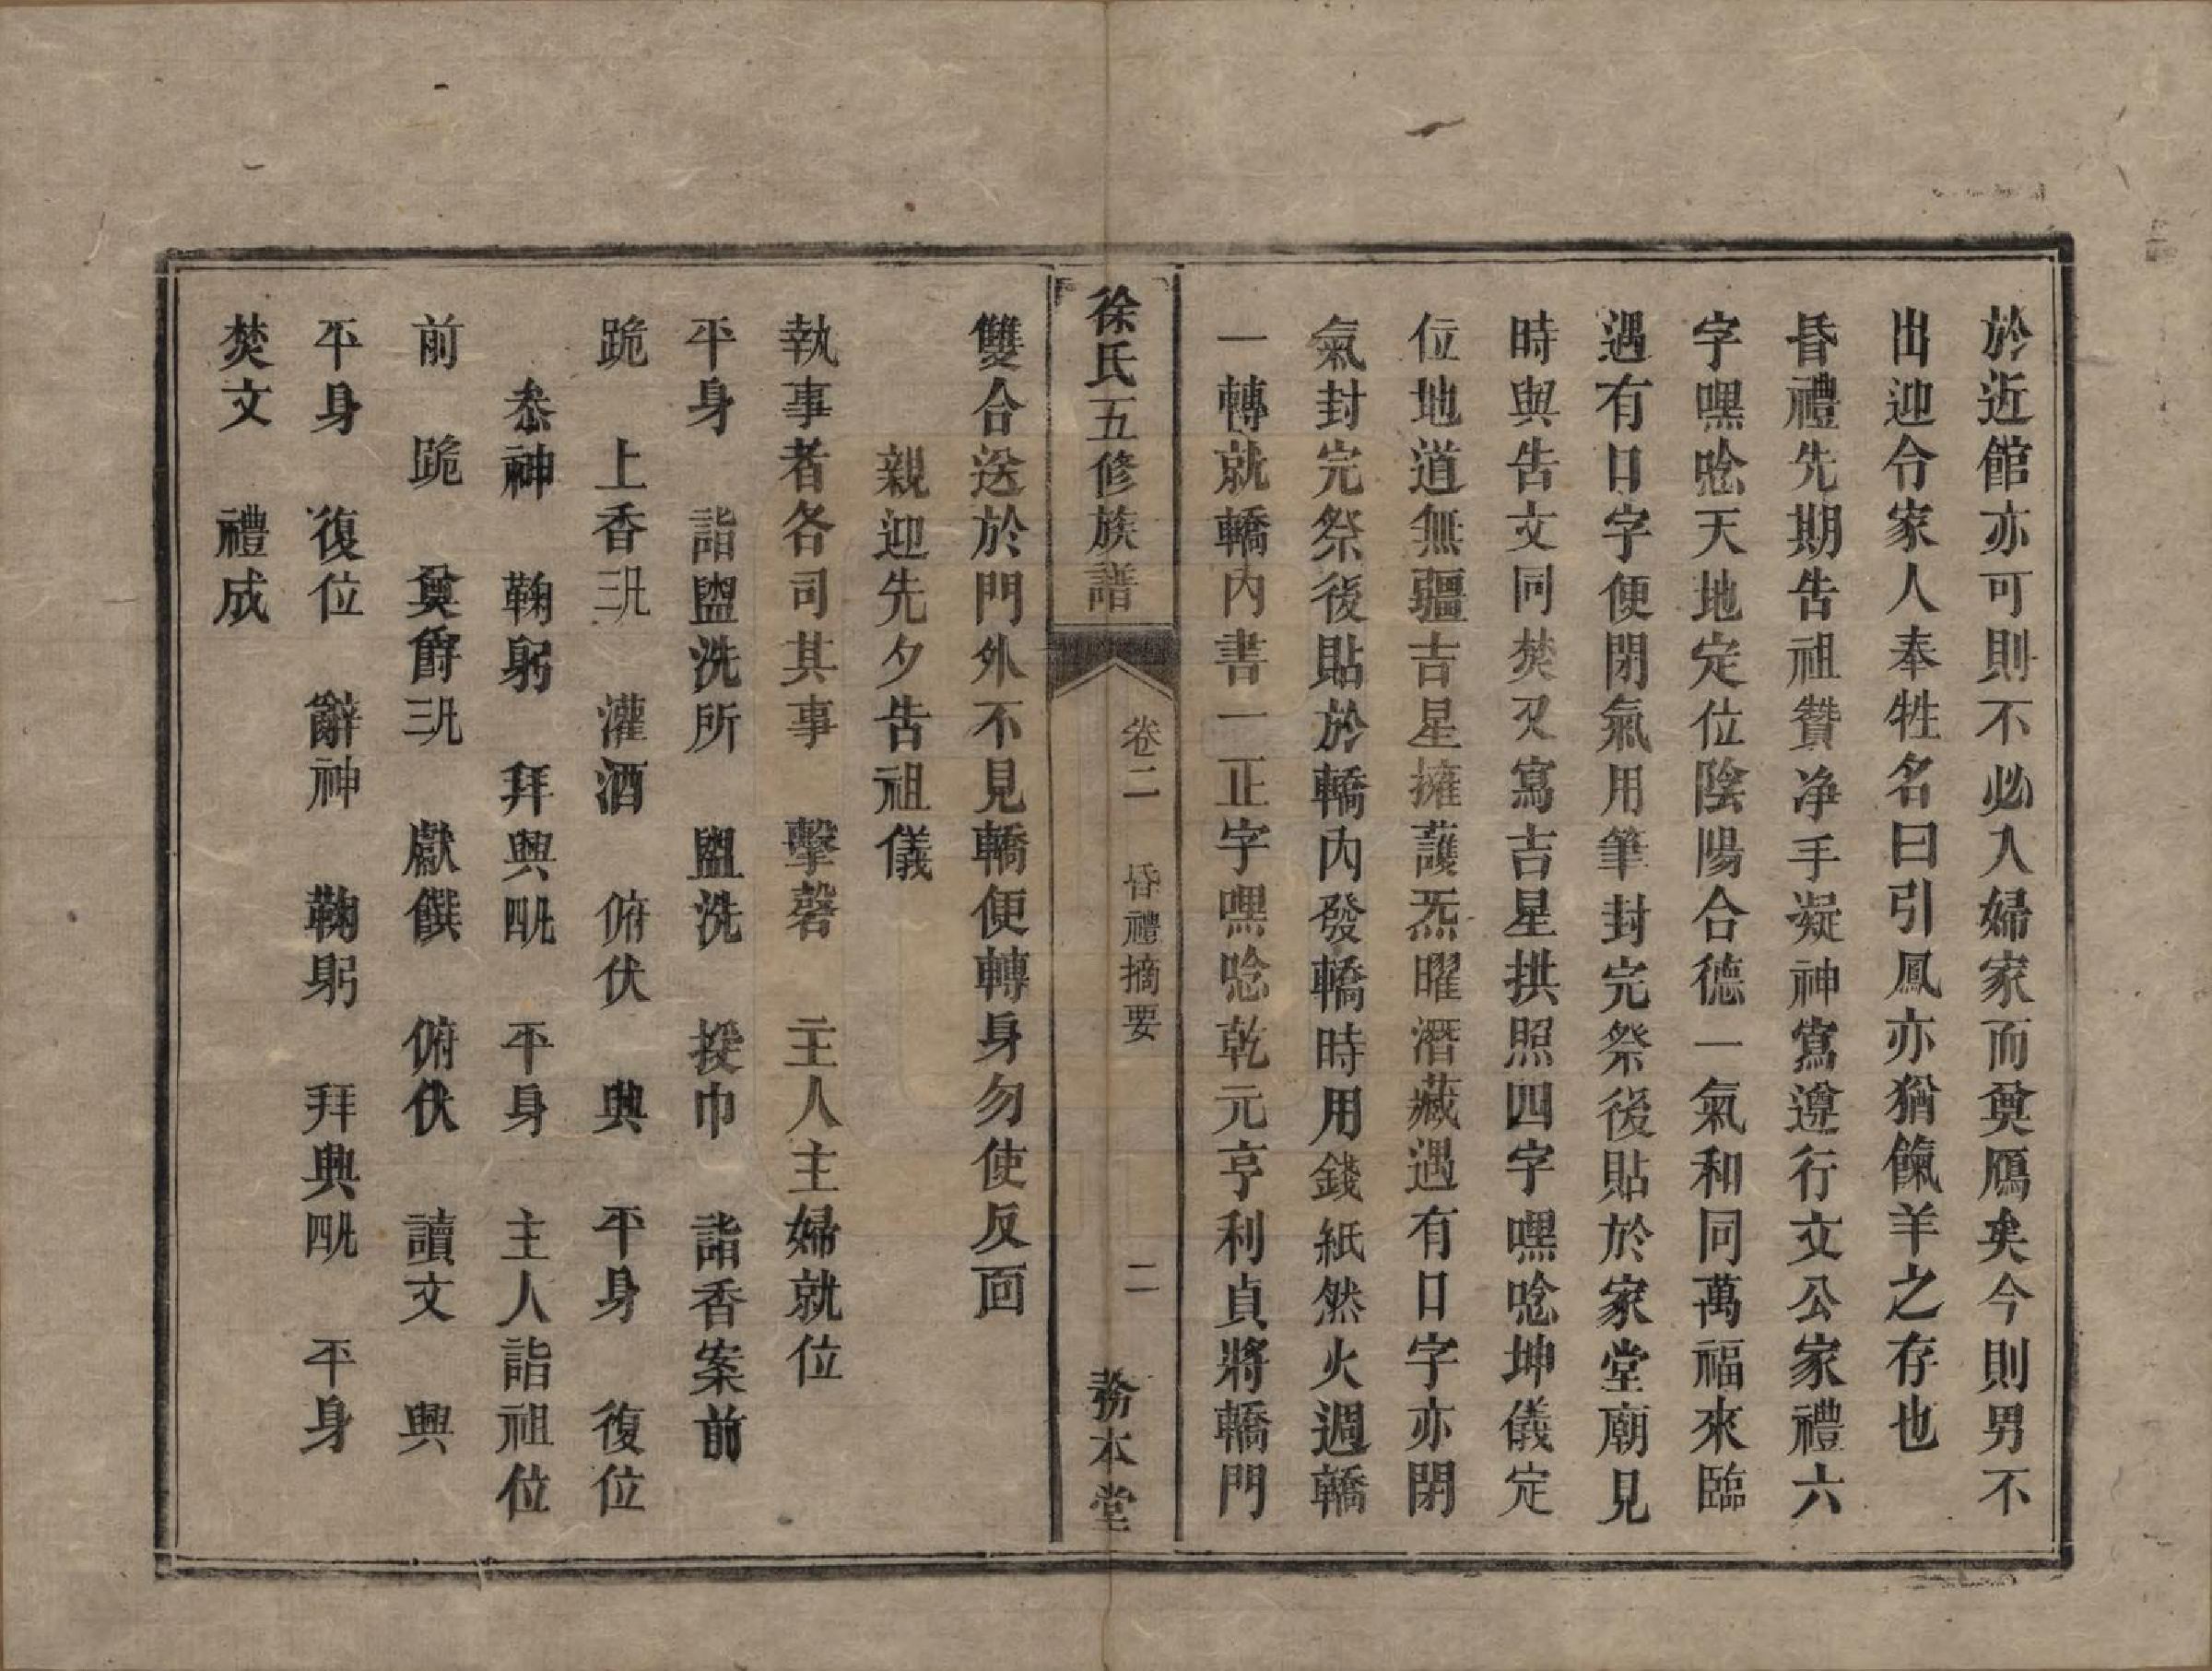 於近館亦可則不必入婦家而奠鴈矣今則男不
出迎令家人奉牲名曰引鳳亦猶餼羊之存也
昏禮先期告祖贊净手凝神寫遵行文公家禮六
字嘿唸天地定位陰陽合德一氣和同萬福來臨
遇有口字便閉氣用筆封完祭後貼於家堂廟見
時與告文同焚又寫吉星拱照四字嘿唸坤儀定
位地道無疆吉星擁護炁曜潛藏遇有口字亦閉
氣封完祭後貼於轎內發轎時用錢紙然火週轎
一轉就轎內書一正字嘿唸乾元亨利貞將轎門
徐氏五修族譜
卷二
昏禮摘要
二
務本堂
雙合送於門外不見轎便轉身勿使反面
親迎先夕告祖儀
執事者各司其事 擊磬 主人主婦就位
平身 詣盥洗所 盥洗 授巾 詣香案前
跪 上香三㧊 灌酒 俯伏 興 平身 復位
叅神 鞠躬 拜興四㧊 平身 主人詣祖位
前 跪 奠爵三㧊 獻饌 俯伏 讀文 興
平身 復位 辭神 鞠躬 拜興四㧊 平身
焚文 禮成